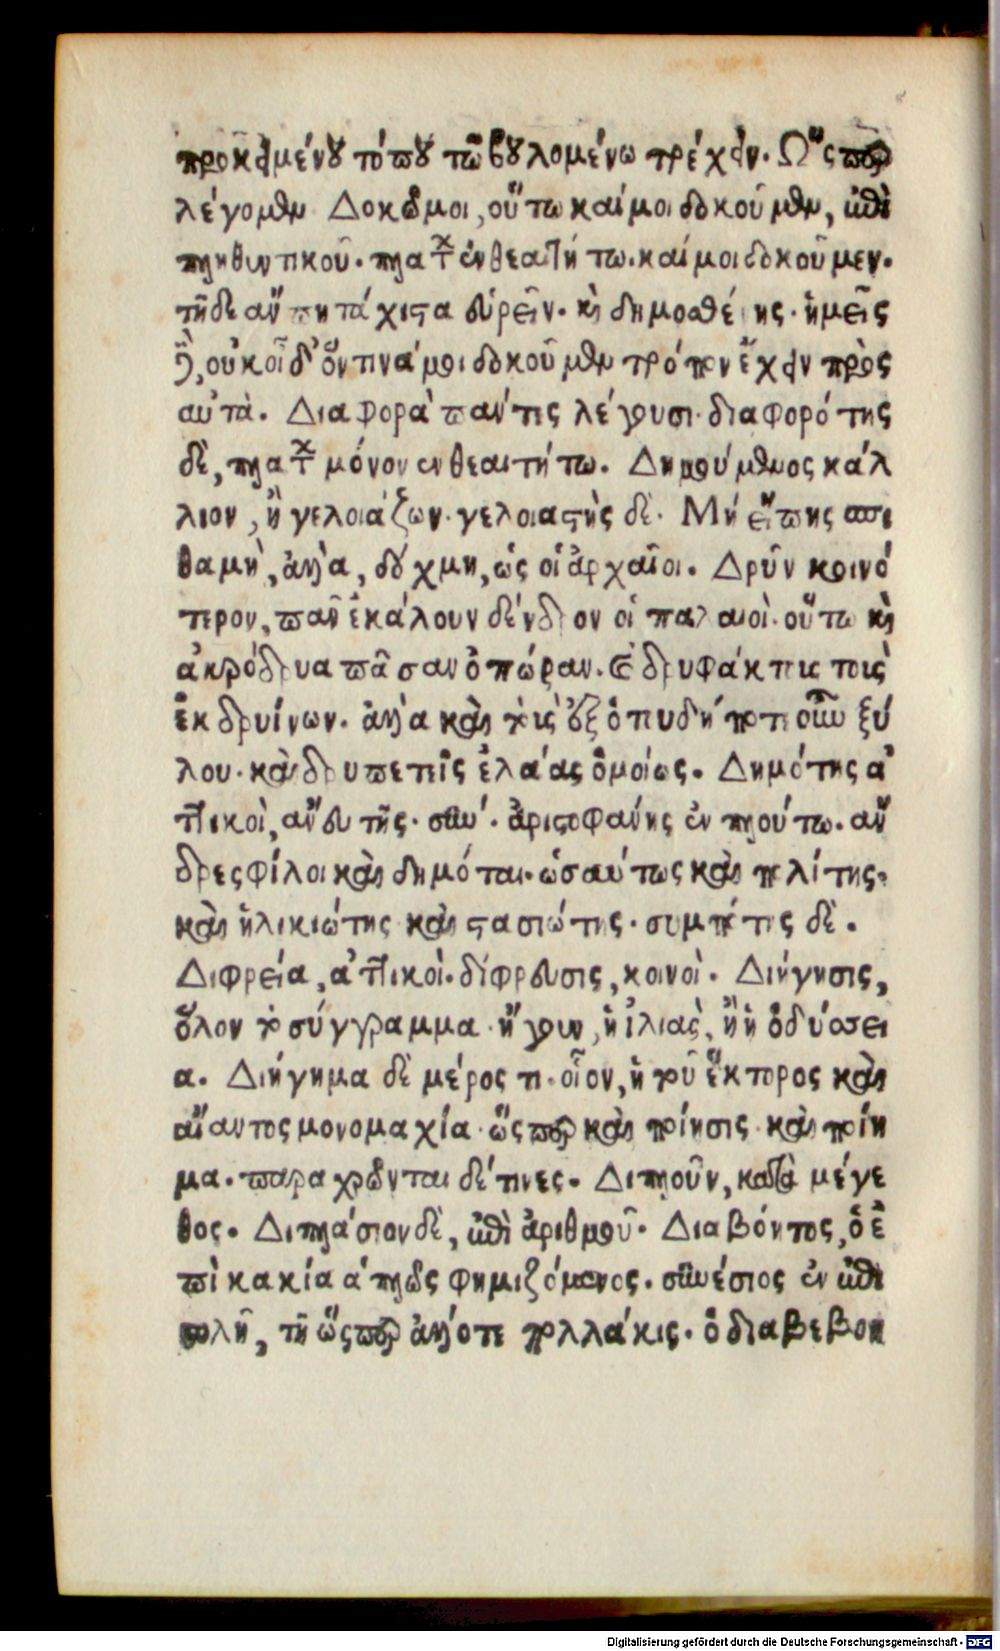 προκειμένου τόπου τῷ βουλομένω τρέχειν. Ὥσπερ
λέγομεν Δοκεῖμοι, οὕτω καίμοι δοκοῦμεν, ἐπὶ
πληθυντικοῦ. πλάτ ἐνθεαιτήτω. καίμοι δοκοῦμεν.
τῆδε αὖ πη τάχιστα εὑρεῖν. καὶ δημοσθένης. ἡμεῖς
οὐκ οἶδ' ὅντινά μοι δοκοῦμεν τρόπον ἔχειν πρὸς
αὐτά. Διαφορὰ πάντες λέγουσι. διαφορότης
δὲ, πλάτ μόνον ἐν θεαιτήτω. Δημούμενος κάλ
λιον, ἢ γελοιάζων. γελοιαστὴς δὲ. Μὴ εἴπης σπι
θαμὴ, ἀλλὰ, δοχμη, ὡς οἱ ἀρχαῖοι. Δρῦν κοινό
τερον, πᾶν ἐκάλουν δένδρον οἱ παλαιοὶ. οὕτω καὶ
ἀκρόδρυα πᾶσαν ὀπώραν. καὶ δρυφάκτοις τοὺς
ἐκ δρυίνων. ἀλλὰ καὶ τοὺς ἐξ ὁπουδήποτιοῦν ξύ
λου. καὶ δρυπετεῖς ἐλαίας ὁμοίως. Δημότης ἀτ
τικοὶ, ἄνευ τῆς. συν. ἀριστοφάνης ἐν πλούτω. ἄν
δρες φίλοι καὶ δημόται. ὡσαύτως καὶ πολίτης.
καὶ ἡλικιώτης καὶ στασιώτης. συμπότης δὲ.
Διφρεία, ἀττικοὶ. δίφρευσις, κοινοὶ. Διήγησις,
ὅλον τὸ σύγγραμμα. ἤγουν, ἡ ἰλιὰς, ἢ ἡ ὀδύσσει
α. Διήγημα δὲ μέρος τι. οἷον, ἡ τοῦ ἕκτορος καὶ
αἴαντος μονομαχία. ὥσπερ καὶ ποίησις. καὶ ποίη
μα. παραχρῶνται δέ τινες. Διπλοῦν, κατὰ μέγε
θος. Διπλάσιον δὲ, ἐπὶ ἀριθμοῦ. Διαβόητος, ὁ ἐ
πὶ κακία ἁπλῶς φημιζόμενος. συνέσιος ἐν ἐπι
στολῆ, τῆ ὥσπερ ἄλλοτε πολλάκις. ὁ διαβεβοη
Digitalisierung gefördert durch die Deutsche Forschungsgemeinschaft - DFG